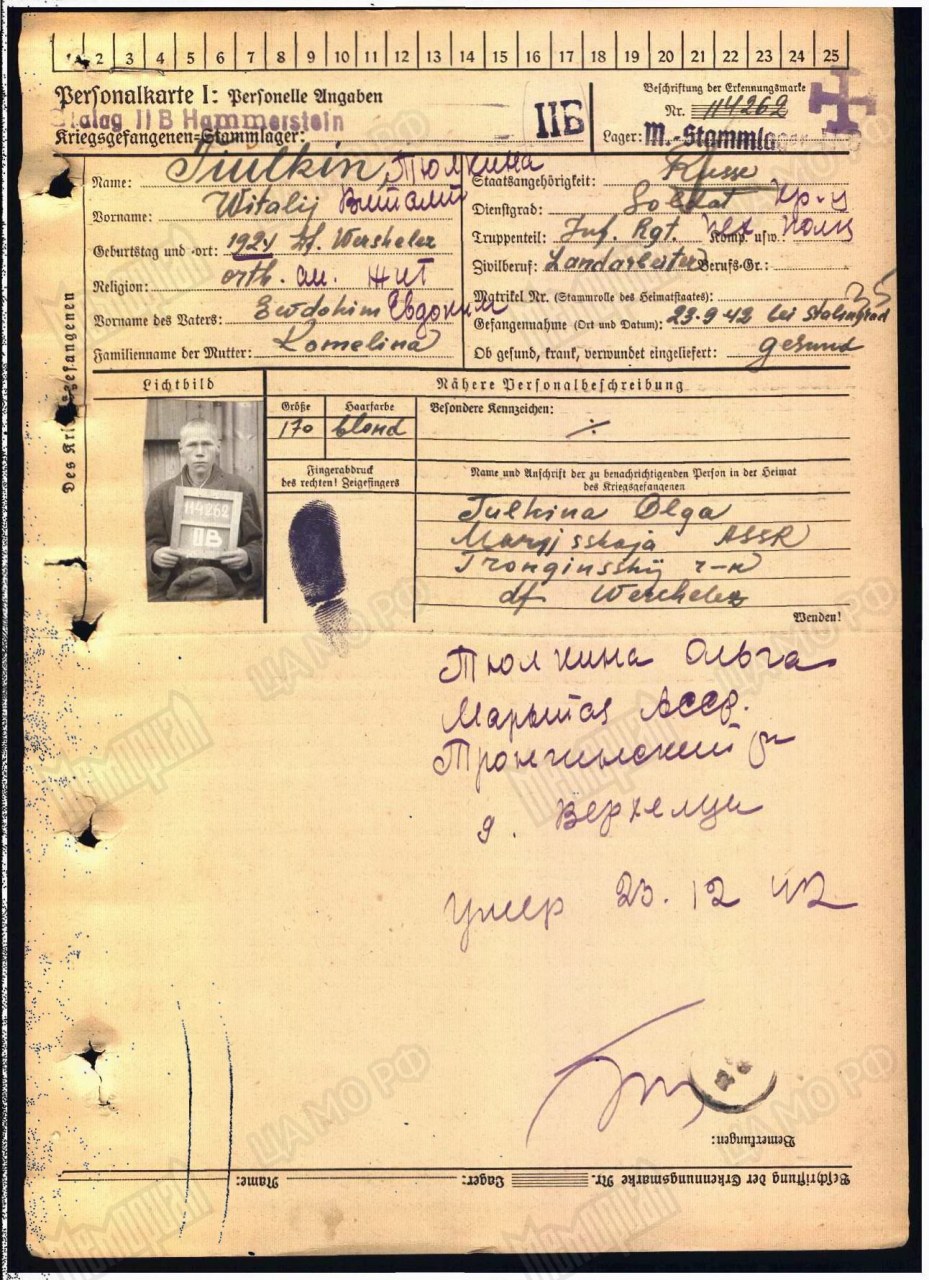 1 2 3 4 5 6 7 8 9 10 11 12 13 14 15 16 17 18 19 20 21 22 23 24 25
Personalkarte I: Personelle Angaben
Stalag II B Hammerstein
Kriegsgefangenen-Stammlager:
IIБ
Beschriftung der Erkennungsmarke
Nr. 114262
Lager: M.-Stammlager
Des Kriegsgefangenen
Name: Tiulkin, Тюлкина
Vorname: Witalij Виталий
Geburtstag und -ort: 1924 df. Wershelez
Religion: orth.
Vorname des Vaters: Ewdohim Евдоким
Familienname der Mutter: Komelina
Staatsangehörigkeit: Russe
Dienstgrad: Soldat Кр-ц
Truppenteil: Inf. Rgt. Komp. usw.: Полк
Zivilberuf: Landarbeiter Berufs-Gr.:
Matrikel Nr. (Stammrolle des Heimatstaates):
35
Gefangennahme (Ort und Datum): 23.9.42 bei Stalingrad
Ob gesund, krank, verwundet eingeliefert: gesund
Lichtbild
114262
IIB
Nähere Personalbeschreibung
Größe
170
Haarfarbe
blond
Besondere Kennzeichen:
Fingerabdruck
des rechten! Zeigefingers
Name und Anschrift der zu benachrichtigenden Person in der Heimat
des Kriegsgefangenen
Tulkina Olga
Maryjsskaja ASSR
Tronginsskij r-n
df Werchelez
Wenden!
Тюлкина Ольга
Марыйская АССР.
Тронгинский р-н
д. Верхелци
умер 23.12 42
Bemerkungen:
Beschriftung der Erkennungsmarke Nr. Lager: Name:
ЦАМО РФ